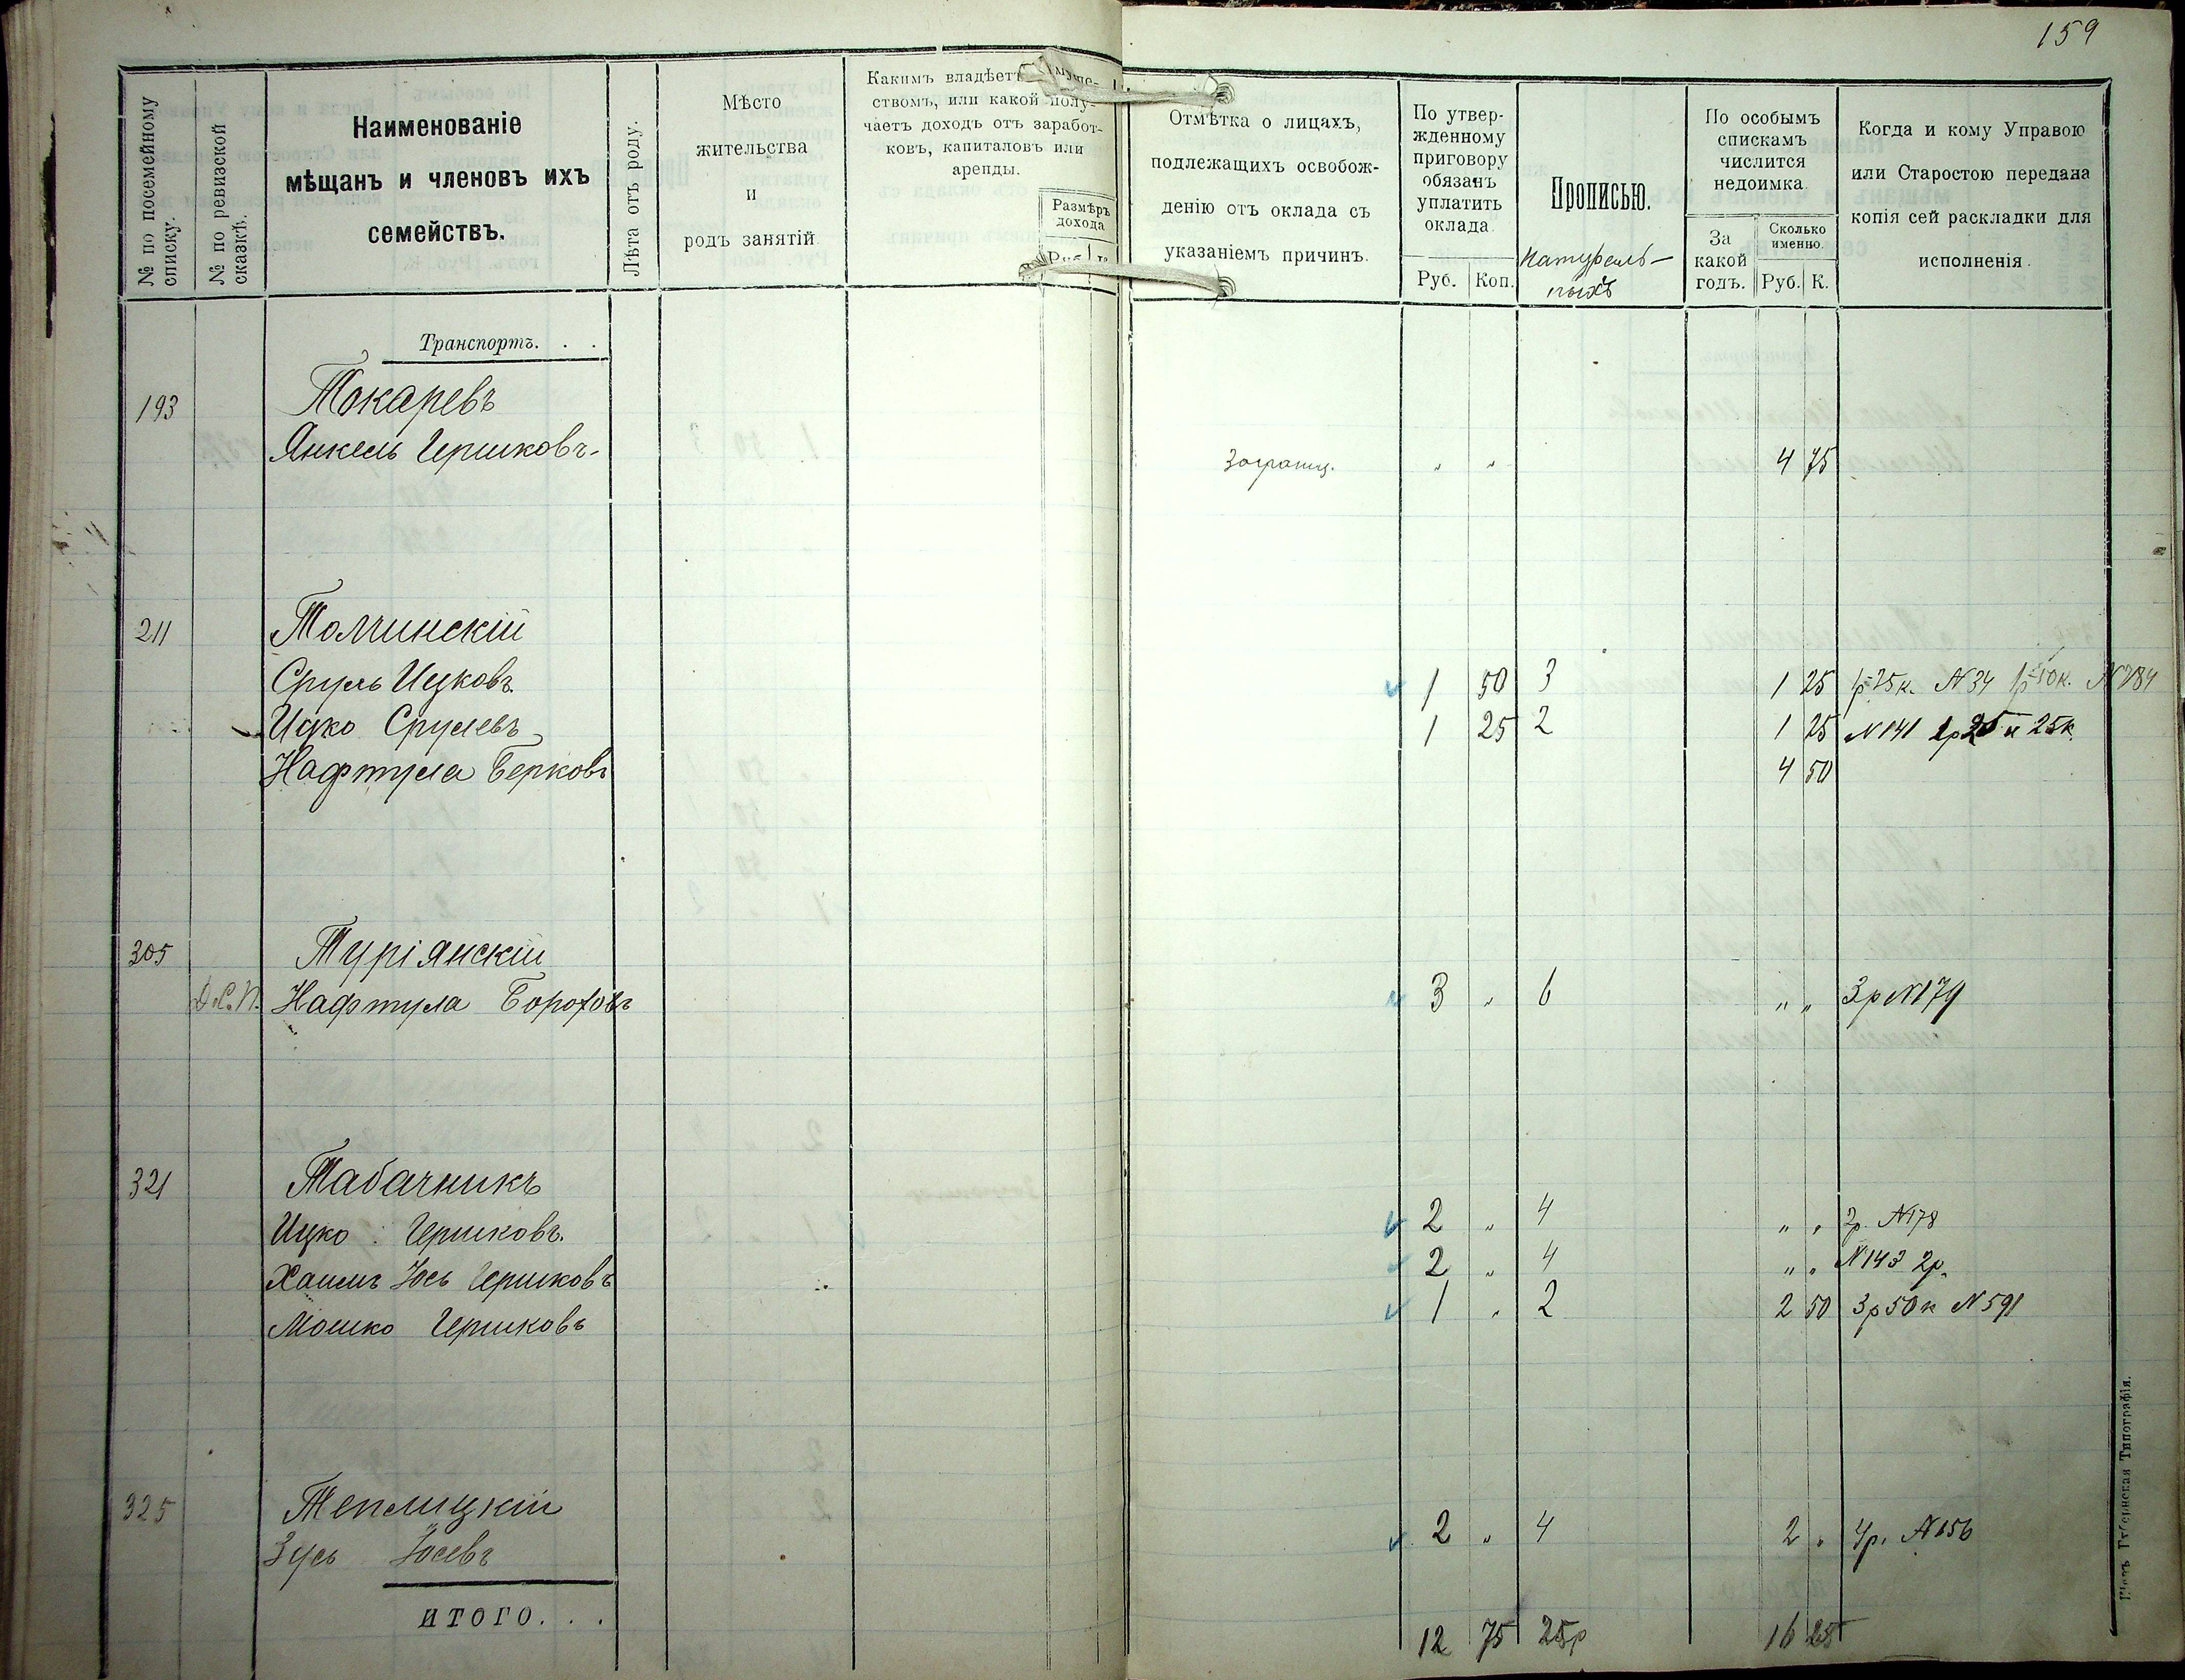 159
№ по посемейному списку.
№ по ревизской сказкѣ.
Наименованіе
мѣщанъ и членовъ ихъ
семействъ.
Лѣта отъ роду.
Мѣсто
жительства
и
родъ занятій
Какимъ владѣетъ
ствомъ, или какой полу-
чаетъ доходъ отъ заработ-
ковъ, капиталовъ или
аренды.
Размѣръ
дохода
Руб. К
Отмѣтка о лицахъ,
подлежащихъ освобож-
денію отъ оклада съ
указаніемъ причинъ.
По утвер-
жденному
приговору
обязанъ
уплатить
оклада
Руб. Коп.
Прописью.
Натураль-
ныхъ
По особымъ
спискамъ
числится
недоимка.
За
какой
годъ.
Сколько
именно.
Руб. К.
Когда и кому Управою
или Старостою передана
копія сей раскладки для
исполненія.
Транспортъ. . .
193 Токаревъ
Янкель Гершковъ. Заграниц. " " 4 75
211 Толчинскій
Сруль Ицковъ. 1 50 3 1 25 1р 25к. N 34 1р 50к. N 784
Ицко Срулевъ 1 25 2 1 25 N 141 2р 25 и 25к.
Нафтула Берковъ 4 50
305 Туріянскій
Д.С.П. Нафтула Бороховъ 3 " 6 " " 3р N 179
321 Табачникъ
Ицко Гершковъ. 2 " 4 " " 2р. N 178
Хаимъ Іось Гершковъ 2 " 4 " " N 143 2р.
Мошко Гершковъ 1 " 2 2 50 3р 50к N 591
325 Теплицкій
Зусь Іосевъ 2 " 4 2 " 4р. N 156
ИТОГО. . . 12 75 25р 16 25
Типографія.